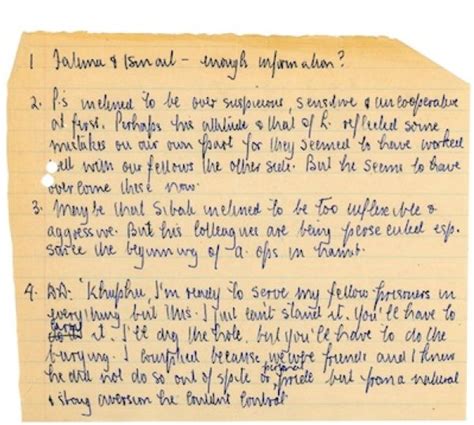 1 Fatima & Ismail – enough information?
2. P.S inclined to be over suspicious, sensitive & uncooperative
at first. Perhaps his attitude & that of L. reflected some
mistakes on our own part for they seemed to have worked
well with our fellows the other side. But he seems to have
overcome these now.
3. Maybe that Sibali inclined to be too inflexible &
aggressive. But his colleagues are being persecuted esp.
since the beginning of a. ops in
4. AA: 'Khuphu, I'm ready to serve my fellow prisoners in
everything but this. I just can't stand it. You'll have to
carry it. I'll dig the hole, but you'll have to do the
burying. I complied because we were friends and I knew
he did not do so out of spite or personal pride but from a natural
& strong aversion he couldn't control